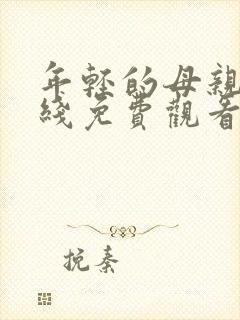 年轻的母親
綫免費觀看
挽秦